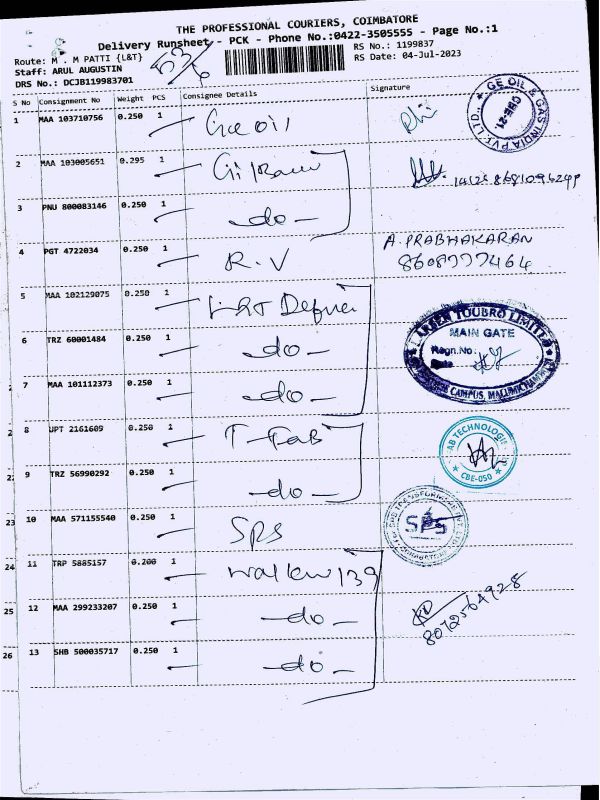 THE PROFESSIONAL COURIERS, COIMBATORE
Delivery Runsheet - PCK - Phone No.:0422-3505555 - Page No.:1
Route: M . M PATTI {L&T} RS No.: 1199837
Staff: ARUL AUGUSTIN RS Date: 04-Jul-2023
DRS No.: DCJB119983701
S No Consignment No Weight PCS Consignee Details Signature
1 MAA 103710756 0.250 1 Gre oil GE OIL & GAS INDIA PVT. LTD., CBE-21.
2 MAA 103005651 0.295 1
3 PNU 800083146 0.250 1 -do-
4 PGT 4722034 0.250 1 R.V A. PRABHAKARAN
8608777464
5 MAA 102129075 0.250 1 LARSEN & TOUBRO LIMITED
MAIN GATE
Regn.No:
Date
CAMPUS, MALUMICHAMPATTI
6 TRZ 60001484 0.250 1 -do-
7 MAA 101112373 0.250 1 -do-
8 JPT 2161609 0.250 1 T-FAB
CBE-050
9 TRZ 56990292 0.250 1 -do-
23 10 MAA 571155540 0.250 1 SPS SPS
24 11 TRP 5885157 0.200 1
25 12 MAA 299233207 0.250 1 -do- 8072564928
26 13 SHB 500035717 0.250 1 -do-